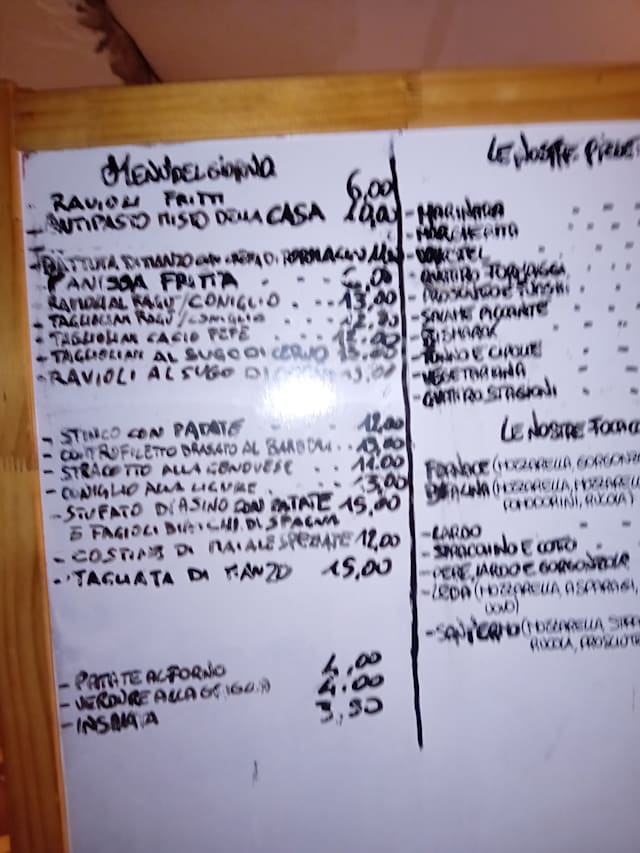 MENU DEL GIORNO
RAVIOLI FRITTI 6,00
- ANTIPASTO MISTO DELLA CASA
- BATTUTA DI MANZO CON
PANISSA FRITTA - - 6,00
- RAVIOLI AL RAGU'/CONIGLIO - - 13,00
- TAGLIOLINI RAGU'/CONIGLIO -
- TAGLIOLINI CACIO PEPE
- TAGLIOLINI AL SUGO DI CERVO
- RAVIOLI AL SUGO DI
- STINCO CON PATATE - - 12,00
- CONTROFILETTO BRASATO AL - -
- STRACOTTO ALLA GENOVESE - - 11.00
- CONIGLIO ALLA LIGURE - - 13,00
- STUFATO D'ASINO CON PATATE 15,00
E FAGIOLI BIANCHI DI SPAGNA
- COSTINE DI MAIALE SPEZIATE 12,00
- TAGLIATA DI MANZO 15,00
- PATATE AL FORNO 4,00
- VERDURE ALLA GRIGLIA 4.00
- INSALATA
LE NOSTRE PIZZE
- MARINARA - -
- MARGHERITA -
- QUATTRO FORMAGGI
- PROSCIUTTO E FUNGHI -
- SALAME PICCANTE
- BISMARK
- TONNO E CIPOLLE
- VEGETARIANA
- QUATTRO STAGIONI
LE NOSTRE FOCACC
FORNACE (MOZZARELLA, GORGONZ
(MOZZARELLA,
POMODORINI, RUCOLA)
- LARDO
- STRACCHINO E COTTO
- PERE, LARDO E GORGONZOLA
- LEDA (MOZZARELLA, ASPARAGI,
UOVO)
(MOZZARELLA,
RUCOLA, PROSCIUTT